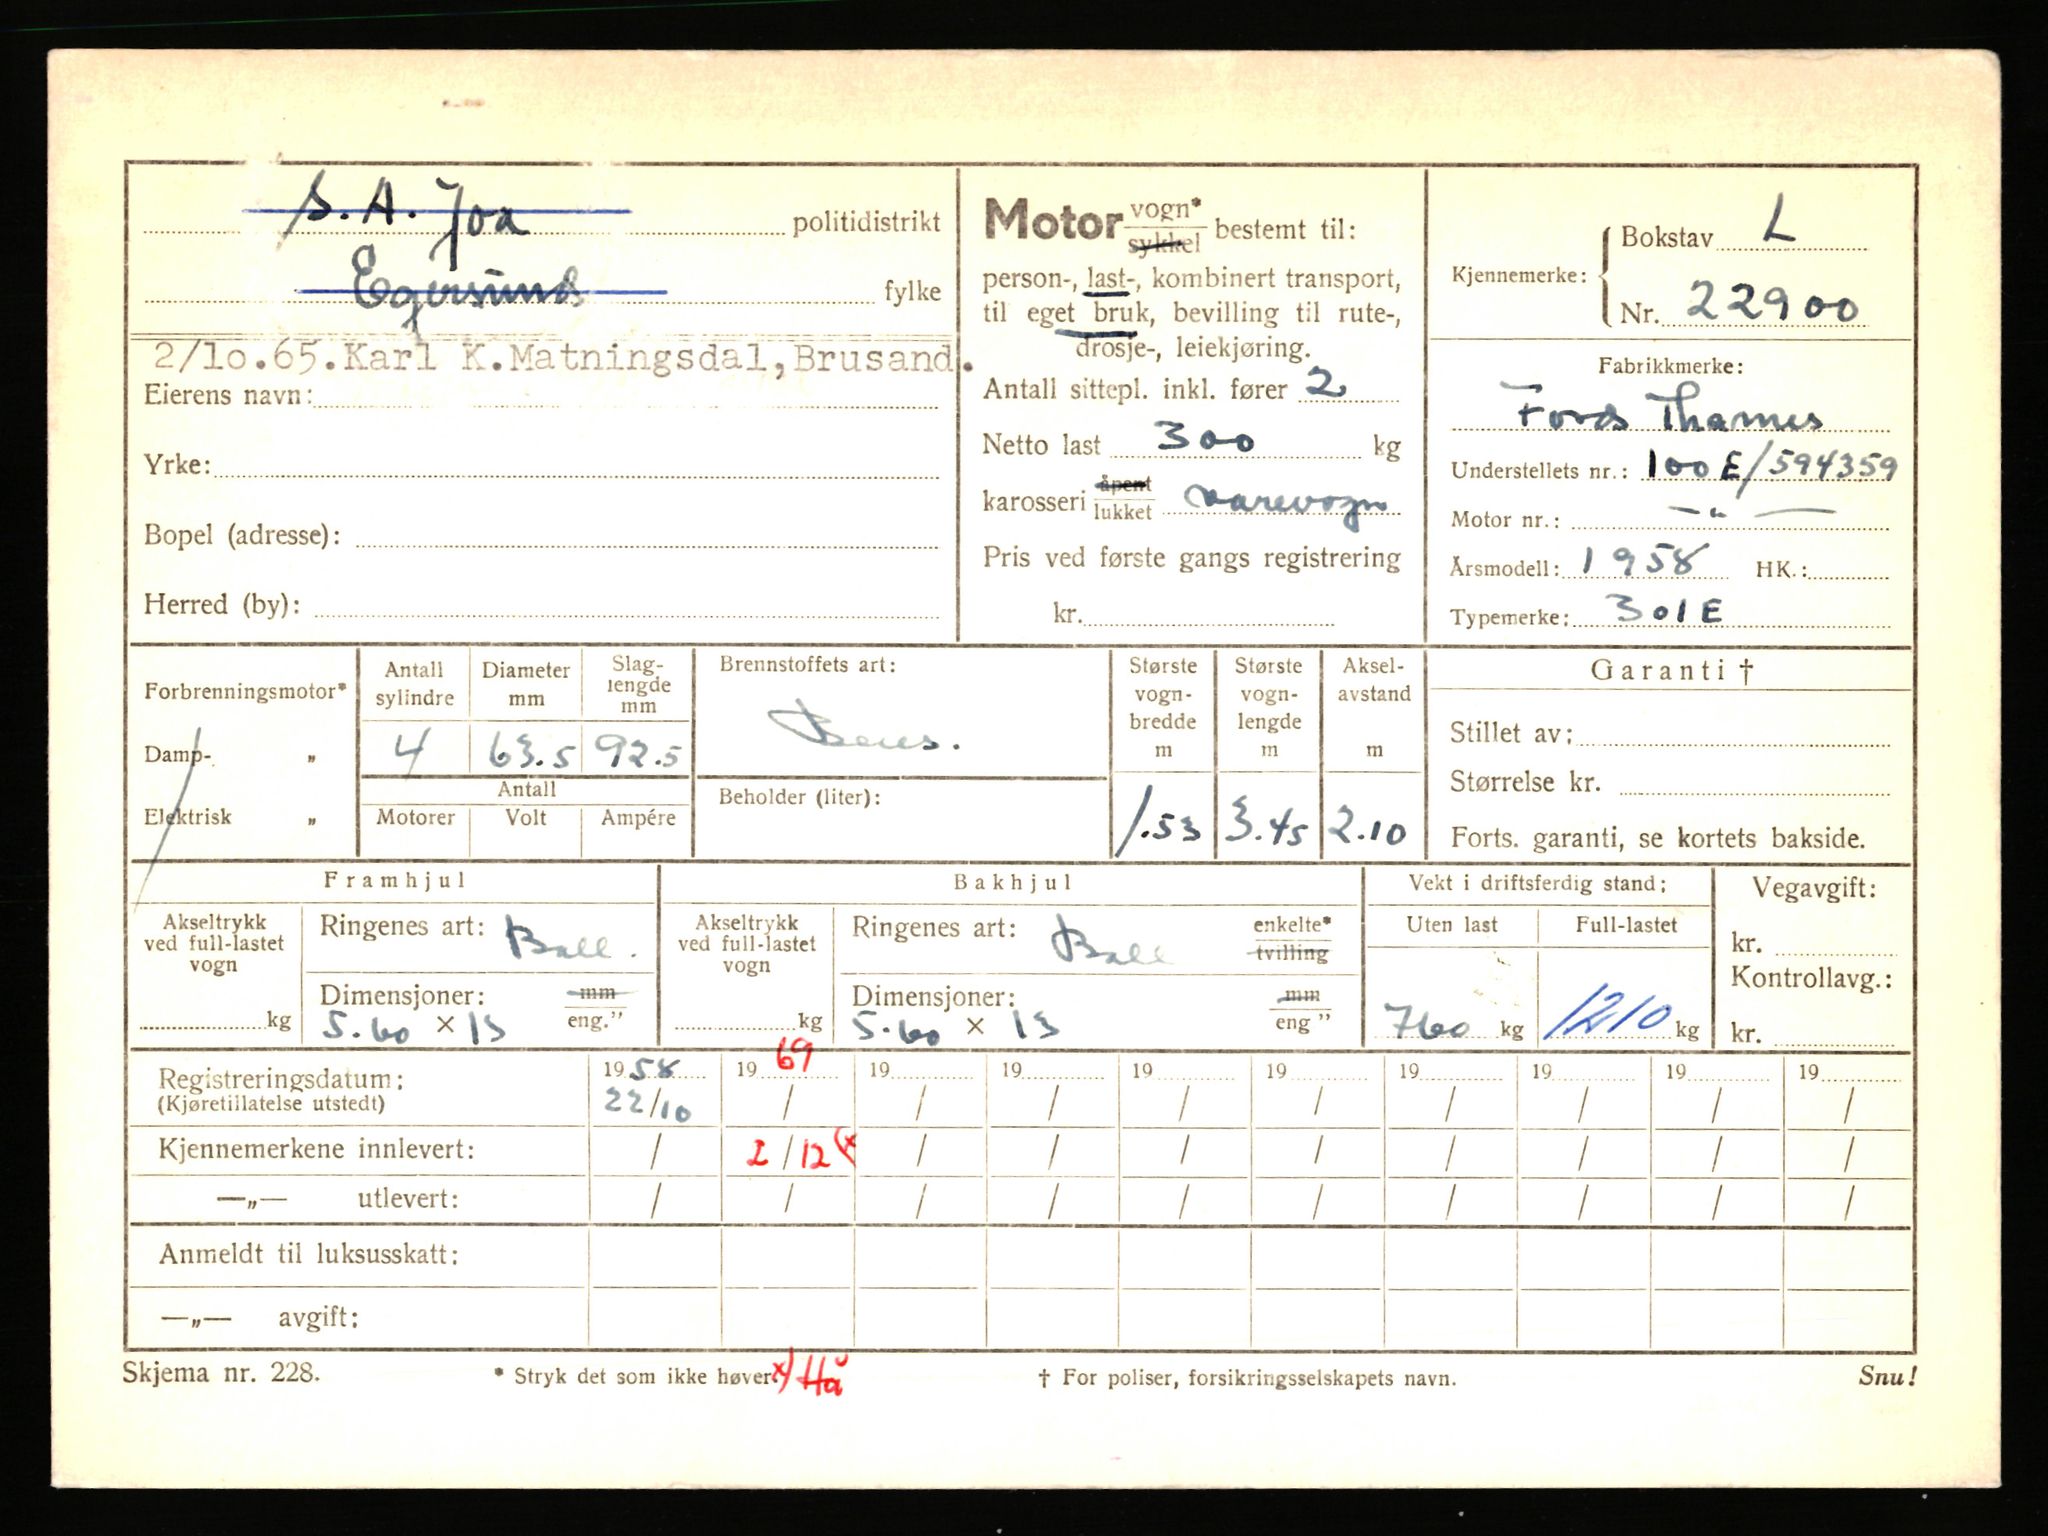 S. A. Joa politidistrikt
Egersund fylke
2/10.65.Karl K.Matningsdal,Brusand.
Eierens navn:
Yrke:
Bopel (adresse):
Herred (by):
Motor vogn* sykkel bestemt til:
person-, last-, kombinert transport,
til eget bruk, bevilling til rute-,
drosje-, leiekjøring.
Antall sittepl. inkl. fører 2
Netto last 300 kg
karosseri åpent lukket varevogn
Pris ved første gangs registrering
kr.
Kjennemerke: Bokstav L
Nr. 22900
Fabrikkmerke:
Ford Thames
Understellets nr.: 100E/594359
Motor nr.: — " —
Årsmodell: 1958 HK.:
Typemerke: 301E
Forbrenningsmotor*
Damp- "
Elektrisk "
Antall sylindre
Diameter mm
Slag-
lengde
mm
4 63.5 92.5
Antall
Motorer Volt Ampére
Brennstoffets art:
Bens.
Beholder (liter):
Største
vogn-
bredde
m
1.53
Største
vogn-
lengde
m
3.45
Aksel-
avstand
m
2.10
Garanti †
Stillet av:
Størrelse kr.
Forts. garanti, se kortets bakside.
Framhjul
Akseltrykk
ved full-lastet
vogn
kg
Ringenes art: Ball.
Dimensjoner: mm eng."
5.60 × 13
Bakhjul
Akseltrykk
ved full-lastet
vogn
kg
Ringenes art: Ball enkelte* tvilling
Dimensjoner: mm eng "
5.60 × 13
Vekt i driftsferdig stand:
Uten last Full-lastet
760 kg 1210 kg
Vegavgift:
kr.
Kontrollavg.:
kr.
Registreringsdatum: 1958 1969 19 19 19 19 19 19 19 19
(Kjøretillatelse utstedt) 22/10 / / / / / / / / /
Kjennemerkene innlevert: / 2/12 (x / / / / / / / /
—„— utlevert: / / / / / / / / / /
Anmeldt til luksusskatt:
—„— avgift:
Skjema nr. 228. * Stryk det som ikke høver. x) Hå † For poliser, forsikringsselskapets navn. Snu!